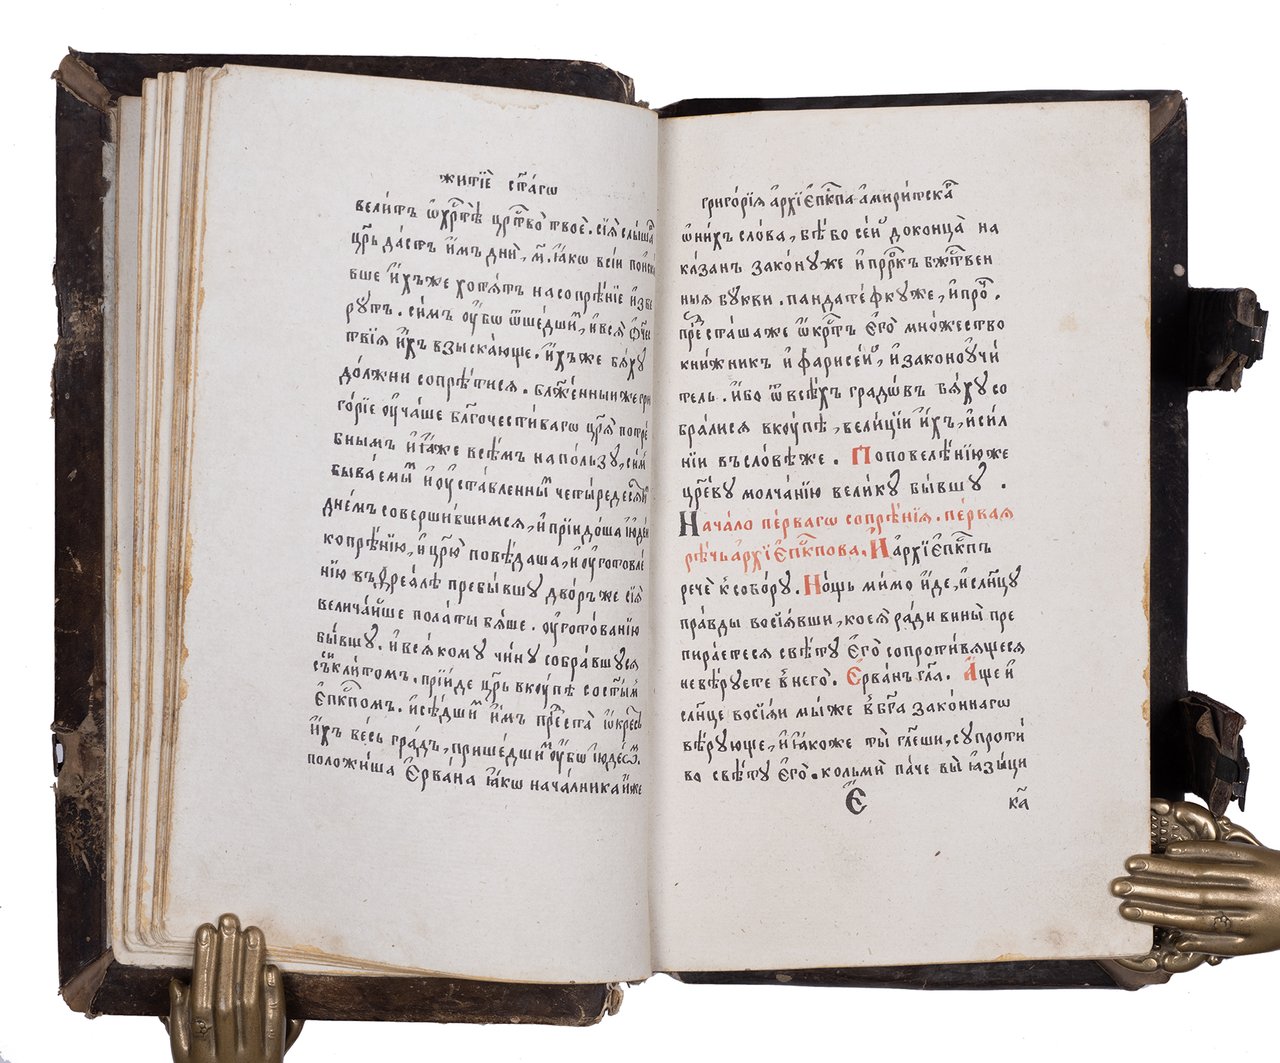 житїѐ ст҃а́гѡ
вели́тъ ѡ҆хрⷭ҇тѣ̀ црⷭ҇тво твоѐ. сїѧ̀ слы́ша
цр҃ь да́стъ и҆́мъ дні́й, м҃. ꙗ҆́кѡ всѝ
вше и҆́хъже хотѧ́тъ насопрѣ́нїе и҆збе
ру́тъ. си́мъ ᲂу҆́бѡ ѿше́дшиⷨ, и҆всѧ̀
твїѧ и҆́хъ взыска́юще. и҆́хъже бѧ́ху
до́лжни сопрѣ́тисѧ. бл҃же́нныиже гри
го́рїе ᲂу҆ча́ше бл҃гочести́ваго цр҃ѧ̀ потре́
бнымъ и҆ꙗ҆́же всѣ́мъ напо́льзу, си́мⸯ
быва́емыⷨ и҆ᲂу҆ста́вленныⷨ четы́редесѧ
дне́мъ соверши́вшимсѧ, и҆прїидо́ша і҆ꙋде́и
копрѣ́нїю, и҆цр҃ю̀ повѣ́даша, и҆ᲂу҆гото́вле́
нїю въѻ҆реа́лѣ пребы́вшу дво́ръже сїѧ̀
велича́йше пола́ты бѧ́ше. ᲂу҆гото́ванїю
бы́вшу. и҆всѧ́кому чи́ну собра́вшусѧ
сѷнкли́томъ. прїи́де цр҃ь вкꙋ́пѣ сост҃ы́мⸯ
є҆пⷭ҇кпомъ. и҆сѣ́дшиⷨ и҆́мъ преⷣста̀ ѡ҆́кре́стъ
и҆́хъ ве́сь гра́дъ, прише́дшиⷨ ᲂу҆́бѡ і҆ꙋде́ѡⷨ.
положи́ша є҆рва́на ꙗ҆́кѡ нача́лника и҆́же
григо́рїѧ а҆рхїє҆пⷭ҇кпа а҆мири́тскаⷢ
ѡ҆ни́хъ сло́ва, бѣ́ бо се́й доконца̀ на
ка́занъ зако́нуже и҆прⷪ҇ркъ бж҃е́ствен
ныѧ бу́кви. пандате́ѳкуже, и҆про́ⷱ.
преⷣста́шаже ѡ҆́крⷭ҇тъ є҆гѡ̀ мно́жество
кни́жникъ и҆ фарисе́й, и҆законоᲂучи́
тель. и҆́бо ѿвсѣ́хъ градо́въ бѧ́ху со
бра́лисѧ вкꙋ́пѣ, вели́цїи и҆́хъ, и҆си́л
нїи въсло́вѣже. Поповелѣ́нїюже
цре́ву молча́нїю вели́ку бы́вшу .
Нача́ло пе́рвагѡ сопрѣ́нїѧ. пе́рваѧ
рѣ́чьа҆рхїє҆пⷭ҇кпова. И҆а҆рхїє҆пⷭ҇кпъ
речѐ к̾собо́ру. Но́щь ми́мо и҆́де, и҆сл҃нцу
пра́вды восїѧ́вши, коеѧ̀ ра́ди вины̀ пре
пира́етесѧ свѣ́ту є҆гѡ̀ сопроти́вѧщесѧ
невѣ́руете в̾негѡ̀. Є҆рва́нъ гл҃а. А҆́ще и҆
сл҃нце восїѧ̀ мы́же в̾бг҃а зако́ннагѡ
вѣ́рующе, и҆ꙗ҆́коже ты̀ гл҃еши, супроти́
во свѣ́ту є҆гѡ̀. кольмѝ па́че вы̀ ꙗ҆зы́цы
є҃і
ка̃